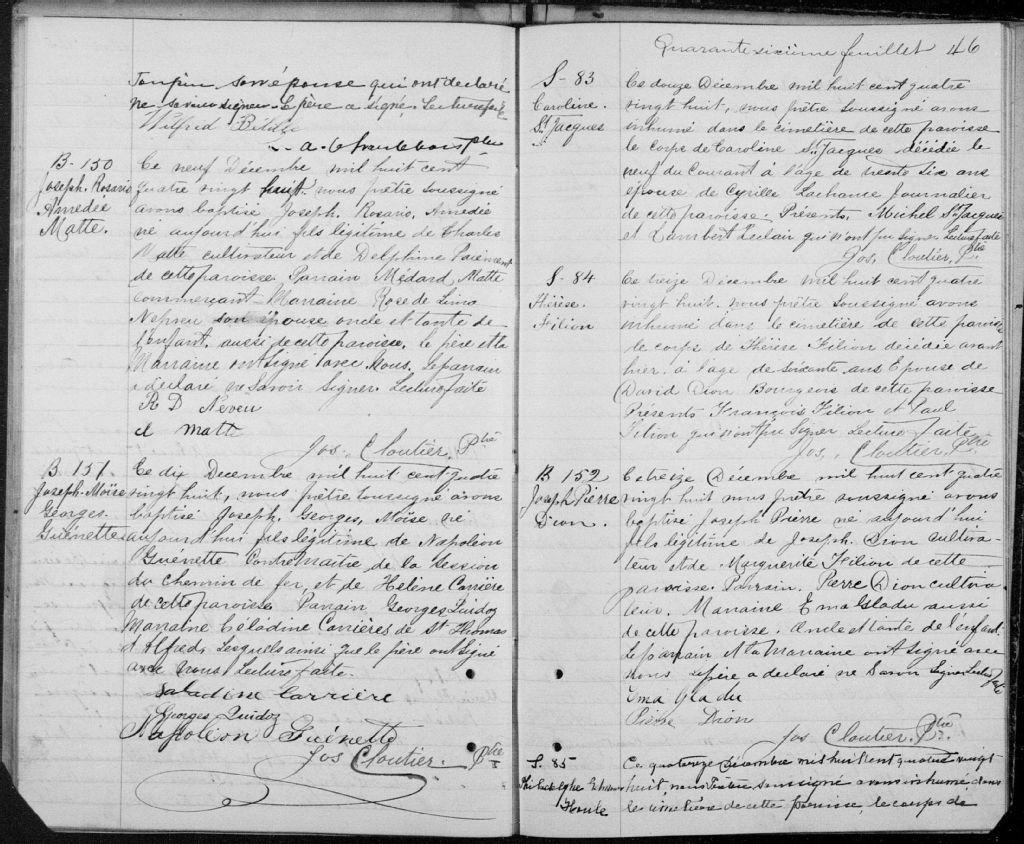 son épouse qui ont déclaré
ne savoir signer. Le père a signé. Lecture faite
Wilfred
Ptre
B. 150
Joseph. Rosario
Amédée
Matte.
Ce neuf Décembre mil huit cent
quatre vingt huit nous prêtre soussigné
avons baptisé Joseph. Rosario. Amédie
né aujourd'hui fils légitime de Charles
Matte cultivateur et de Delphine
de cette paroisse. Parrain Médard Matte
commerçant Marraine Rose de Lima
Neveu son épouse oncle et tante de
l'enfant, aussi de cette paroisse. le père et la
Marraine ont signé avec Nous. Le parrain
a déclaré ne savoir signer. Lecture faite
R D Neveu
Matte
Jos. Cloutier. Ptre
B 151
Joseph-Moïse
Georges.
Guénette
Ce dix Decembre mil huit cent quatre
vingt huit, nous prêtre soussigné avons
baptisé Joseph. Georges, Moïse né
aujourd'hui fils légitime de Napoléon
Guénette Contremaitre de la Session
du chemin de fer, et de Hélène Carrière
de cette paroisse Parrain Georges
Marraine Céladine Carrières de St Thomas
d'Alfred, Lesquels ainsi que le père ont signé
avec nous Lecture faite.
Saladine Carriere
Georges
Napoléon Guénette
Jos Cloutier. Ptre
Quarante sixième feuillet 46
S- 83
Caroline.
St Jacques
Ce douze Décembre mil huit cent quatre
vingt huit, nous prêtre soussigné avons
inhumé dans le cimetière de cette paroisse
le corps de Caroline St Jacques décédée le
neuf du Courant à l'âge de trente six ans
épouse de Cyrille Lachance Journalier
de cette paroisse. Présents, Michel St Jacques
et Lambert Leclair qui n'ont pu signer Lecture faite
Jos. Cloutier, Ptre
S- 84
Thérèse.
Filion
Ce treize Décembre mil huit cent quatre
vingt huit. nous prêtre soussigné avons
inhumé dans le cimetière de cette paroisse
le corps de Thérèse Filion décédée avant
hier. à l'age de soixante ans Epouse de
David Dion Bourgeois de cette paroisse
Présents François Filion et Paul
Filion qui n'ont pu signer Lecture faite
Jos, Cloutier. Ptre
B 152
Joseph Pierre
Dion.
Ce treize Décembre mil huit cent quatre
vingt huit nous prêtre soussigné avons
baptisé Joseph Pierre né aujourd'hui
fils légitime de Joseph. Dion cultiva-
teur et de Marguerite Filion de cette
paroisse. Parrain, Pierre Dion cultiva
teur. Marraine Ema Gladu aussi
de cette paroisse. Oncle et tante de l'enfant.
Le parrain et la Marraine ont signé avec
nous le père a déclaré ne Savoir Signer Lecture faite
Ema Gladu
Pierre Dion
Jos Cloutier. Ptre
S. 85
Houle
Ce quatorze Décembre mil huit cent quatre vingt
huit, nous Prêtre soussigné avons inhumé dans
le cimetière de cette paroisse, le corps de